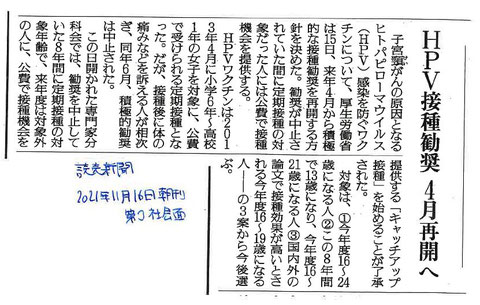 HPV接種勧奨 4月再開へ
子宮頸がんの原因となる
ヒトパピローマウイルス
(HPV)感染を防ぐワク
チンについて、厚生労働省
は15日、来年4月から積極
的な接種勧奨を再開する方
針を決めた。勧奨が中止さ
れていた間に定期接種の対
象だった人には公費で接種
機会を提供する。
HPVワクチンは201
3年4月に小学6年~高校
1年の女子を対象に、公費
で受けられる定期接種とな
った。だが、接種後に体の
痛みなどを訴える人が相次
ぎ、同年6月、積極的勧奨
は中止された。
この日開かれた専門家分
科会では、勧奨を中止して
いた8年間に定期接種の対
象年齢で、来年度は対象外
の人に、公費で接種機会を
提供する「キャッチアップ
接種」を始めることが了承
された。
対象は、①今年度16~24
歳になる人②この8年間
で13歳になり、今年度16~
21歳になる人③国内外の
論文で接種効果が高いとさ
れる今年度16~19歳になる
人――の3案から今後選
ぶ。
読売新聞
2021年11月16日朝刊
第2社会面